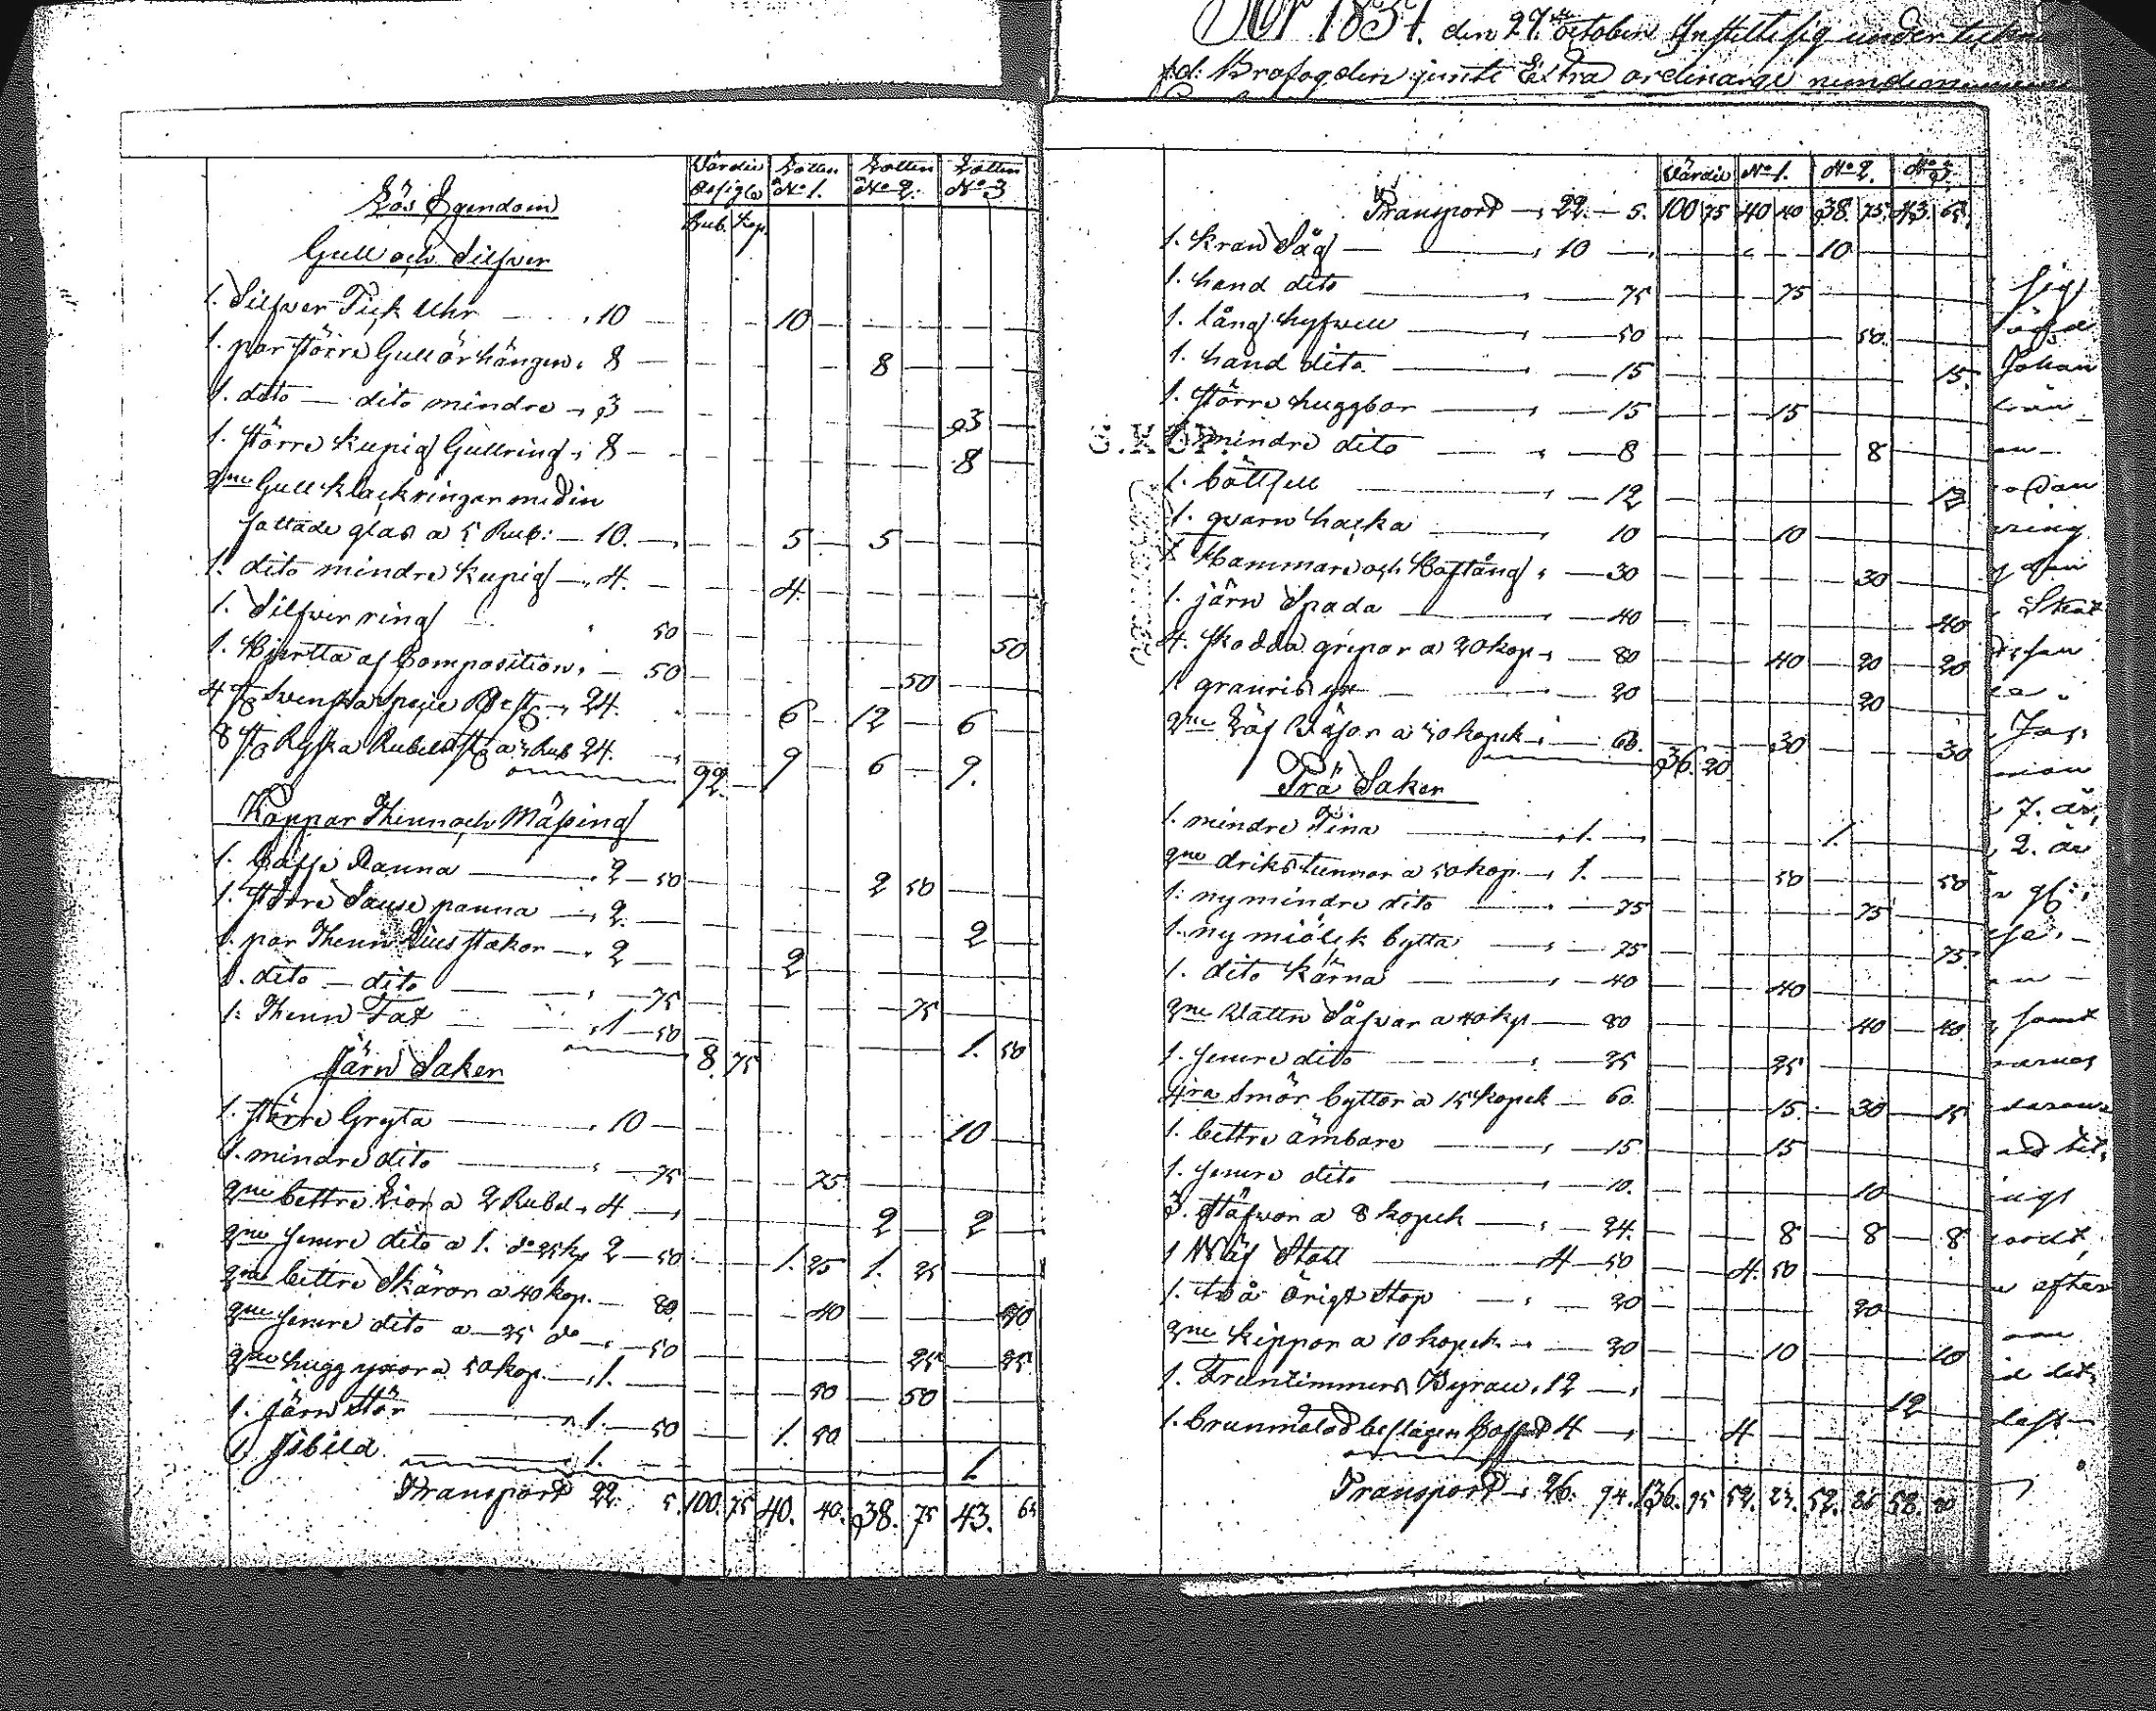 År 1837. den 27de october Instelte sig undertecknad
f.d: Krofogden jemte Extra ordinarge nemdemannen
Lös Egendom
Värdie Lotten Lotten Lotten
Assigto No 1. No 2. No 3
Rub. Kop.
Gull och Silfver
1. Silfver Fick Uhr - 10 - 10
1. par större Gull örhängen 8 - 8
1. dito - dito mindre 3 - 3
1. större kupig Gullring 8 - 8
2ne Gull klackringar med in
fattade glas a 5 Rub: - 10. - 5 - 5
1. dito mindre kupig - 4. - 4.
1. Silfver ring 50 - 50
1. Hjertta af Composition - 50 - 50
4 st Svenska Specie 24. 6 - 12 - 6
8 st Ryska Rubel st a 3 Rub 24. 92. - 9 - 6 - 9.
Koppar Thenn och Mässing
1. Caffe Kanna - 2 - 50 - 2 50
1. större Sause panna - 2. - 2
1. par Thenn Lius stakor - 2 - 2
1. dito - dito - 75 - 75
1: Thenn Fat 1 - 50 8. 75 1. 50
Järn Saker
1. större Gryta - 10 - 10
1. mindre dito - 75 - 75
2ne bettre Lior a 2 Rubel 4 - 2 - 2
2ne semre dito a 1. do 25 kp 2 - 50 - 1. 25 1. 25
2ne bettre Skäror a 40 kop. - 80 - 40 - 40
2ne semre dito a - 25 do - 50 - 25 - 25
2ne hugg yxor a 50 kop. - 1. - 50 - 50
1. järn stör - 1. - 50 - 1. 50
1. Isbild - 1. - 1
Transport 22. 5. 100. 75 40. 40. 38. 75 43. 65
Värdie No 1. No 2. No 3.
Transport - 22. - 5. 100 75 40 40 38. 75. 43. 65.
1. kran Såg - 10 - 10
1. hand dito - 75 - 75
1. lång hyfvell - 50 - 50.
1. hand dito - 15 - 15.
1. större huggbor - 15 - 15
1. mindre dito - 8 - 8
1. - 12 - 12
1. qvarn hacka - 10 - 10
1 Hammare och Hoftång - 30 - 30
1. järn Spada - 40 - 40
4. skodda gripar a 20 kop - 80 - 40 - 20 - 20
1 - 20 - 20
2ne a 30 kopek - 60. 36. 20 30 - 30
Trä Saker
1. mindre Tina - 1. - 1.
2ne driks tunnor a 50 kop. - 1. - 50 - 50
1: ny mindre dito - 75 - 75
1. ny miölck bytta - 75 - 75.
1. dito kärna - 40 - 40
2ne Vattu Såfvar a 40 kp - 80 - 40 - 40.
1. semre dito - 25 - 25
4ra Smör byttor a 15 kopek - 60 - 15. - 30 - 15
1. bettre ämbare - 15 - 15
1. semre dito - 10. - 10
3. Stäfvor a 8 kopek - 24. - 8 - 8 - 8
1 Väf Stoll - 4 - 50 - 4. 50
1. två Örigt Stop - 20 - 20
2ne kippor a 10 kopek - 20 - 10 - 10
1. Fruntimmers Byrau 12 - 12
1. brunmålad beslagen Coffert 4 - 4
Transport - 26. 94. 136. 95 52. 23. 52. 26 58. 20
S.KOP.
Johan
7. år,
2. år
samt
efter